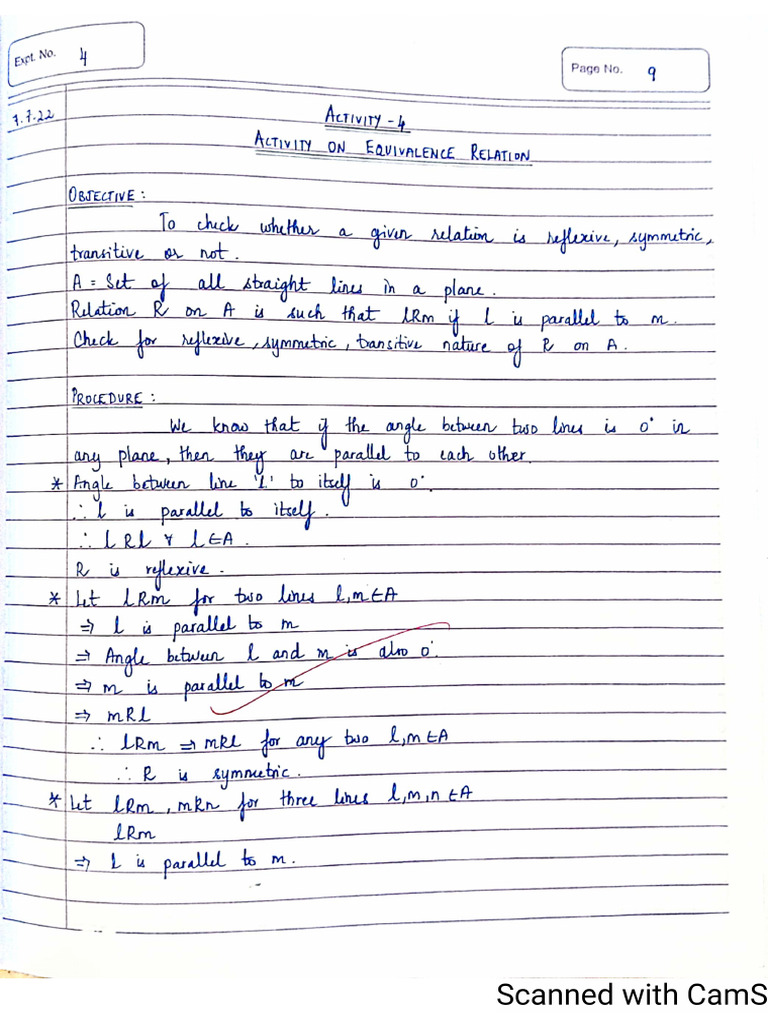 Expt. No. 4
Page No. 9
7.7.22
ACTIVITY - 4
ACTIVITY ON EQUIVALENCE RELATION
OBJECTIVE :
To check whether a given relation is reflexive, symmetric,
transitive or not.
A = Set of all straight lines in a plane.
Relation R on A is such that lRm if l is parallel to m.
Check for reflexive, symmetric, transitive nature of R on A.
PROCEDURE :
We know that if the angle between two lines is 0° in
any plane, then they are parallel to each other.
* Angle between line 'l' to itself is 0°.
∴ l is parallel to itself.
∴ l R l ∀ l ∈ A.
R is reflexive.
* Let lRm for two lines l, m ∈ A
⇒ l is parallel to m
⇒ Angle between l and m is also 0°.
⇒ m is parallel to m
⇒ mRl
∴ lRm ⇒ mRl for any two l, m ∈ A
∴ R is symmetric.
* Let lRm, mRn for three lines l, m, n ∈ A
lRm
⇒ l is parallel to m.
Scanned with CamS